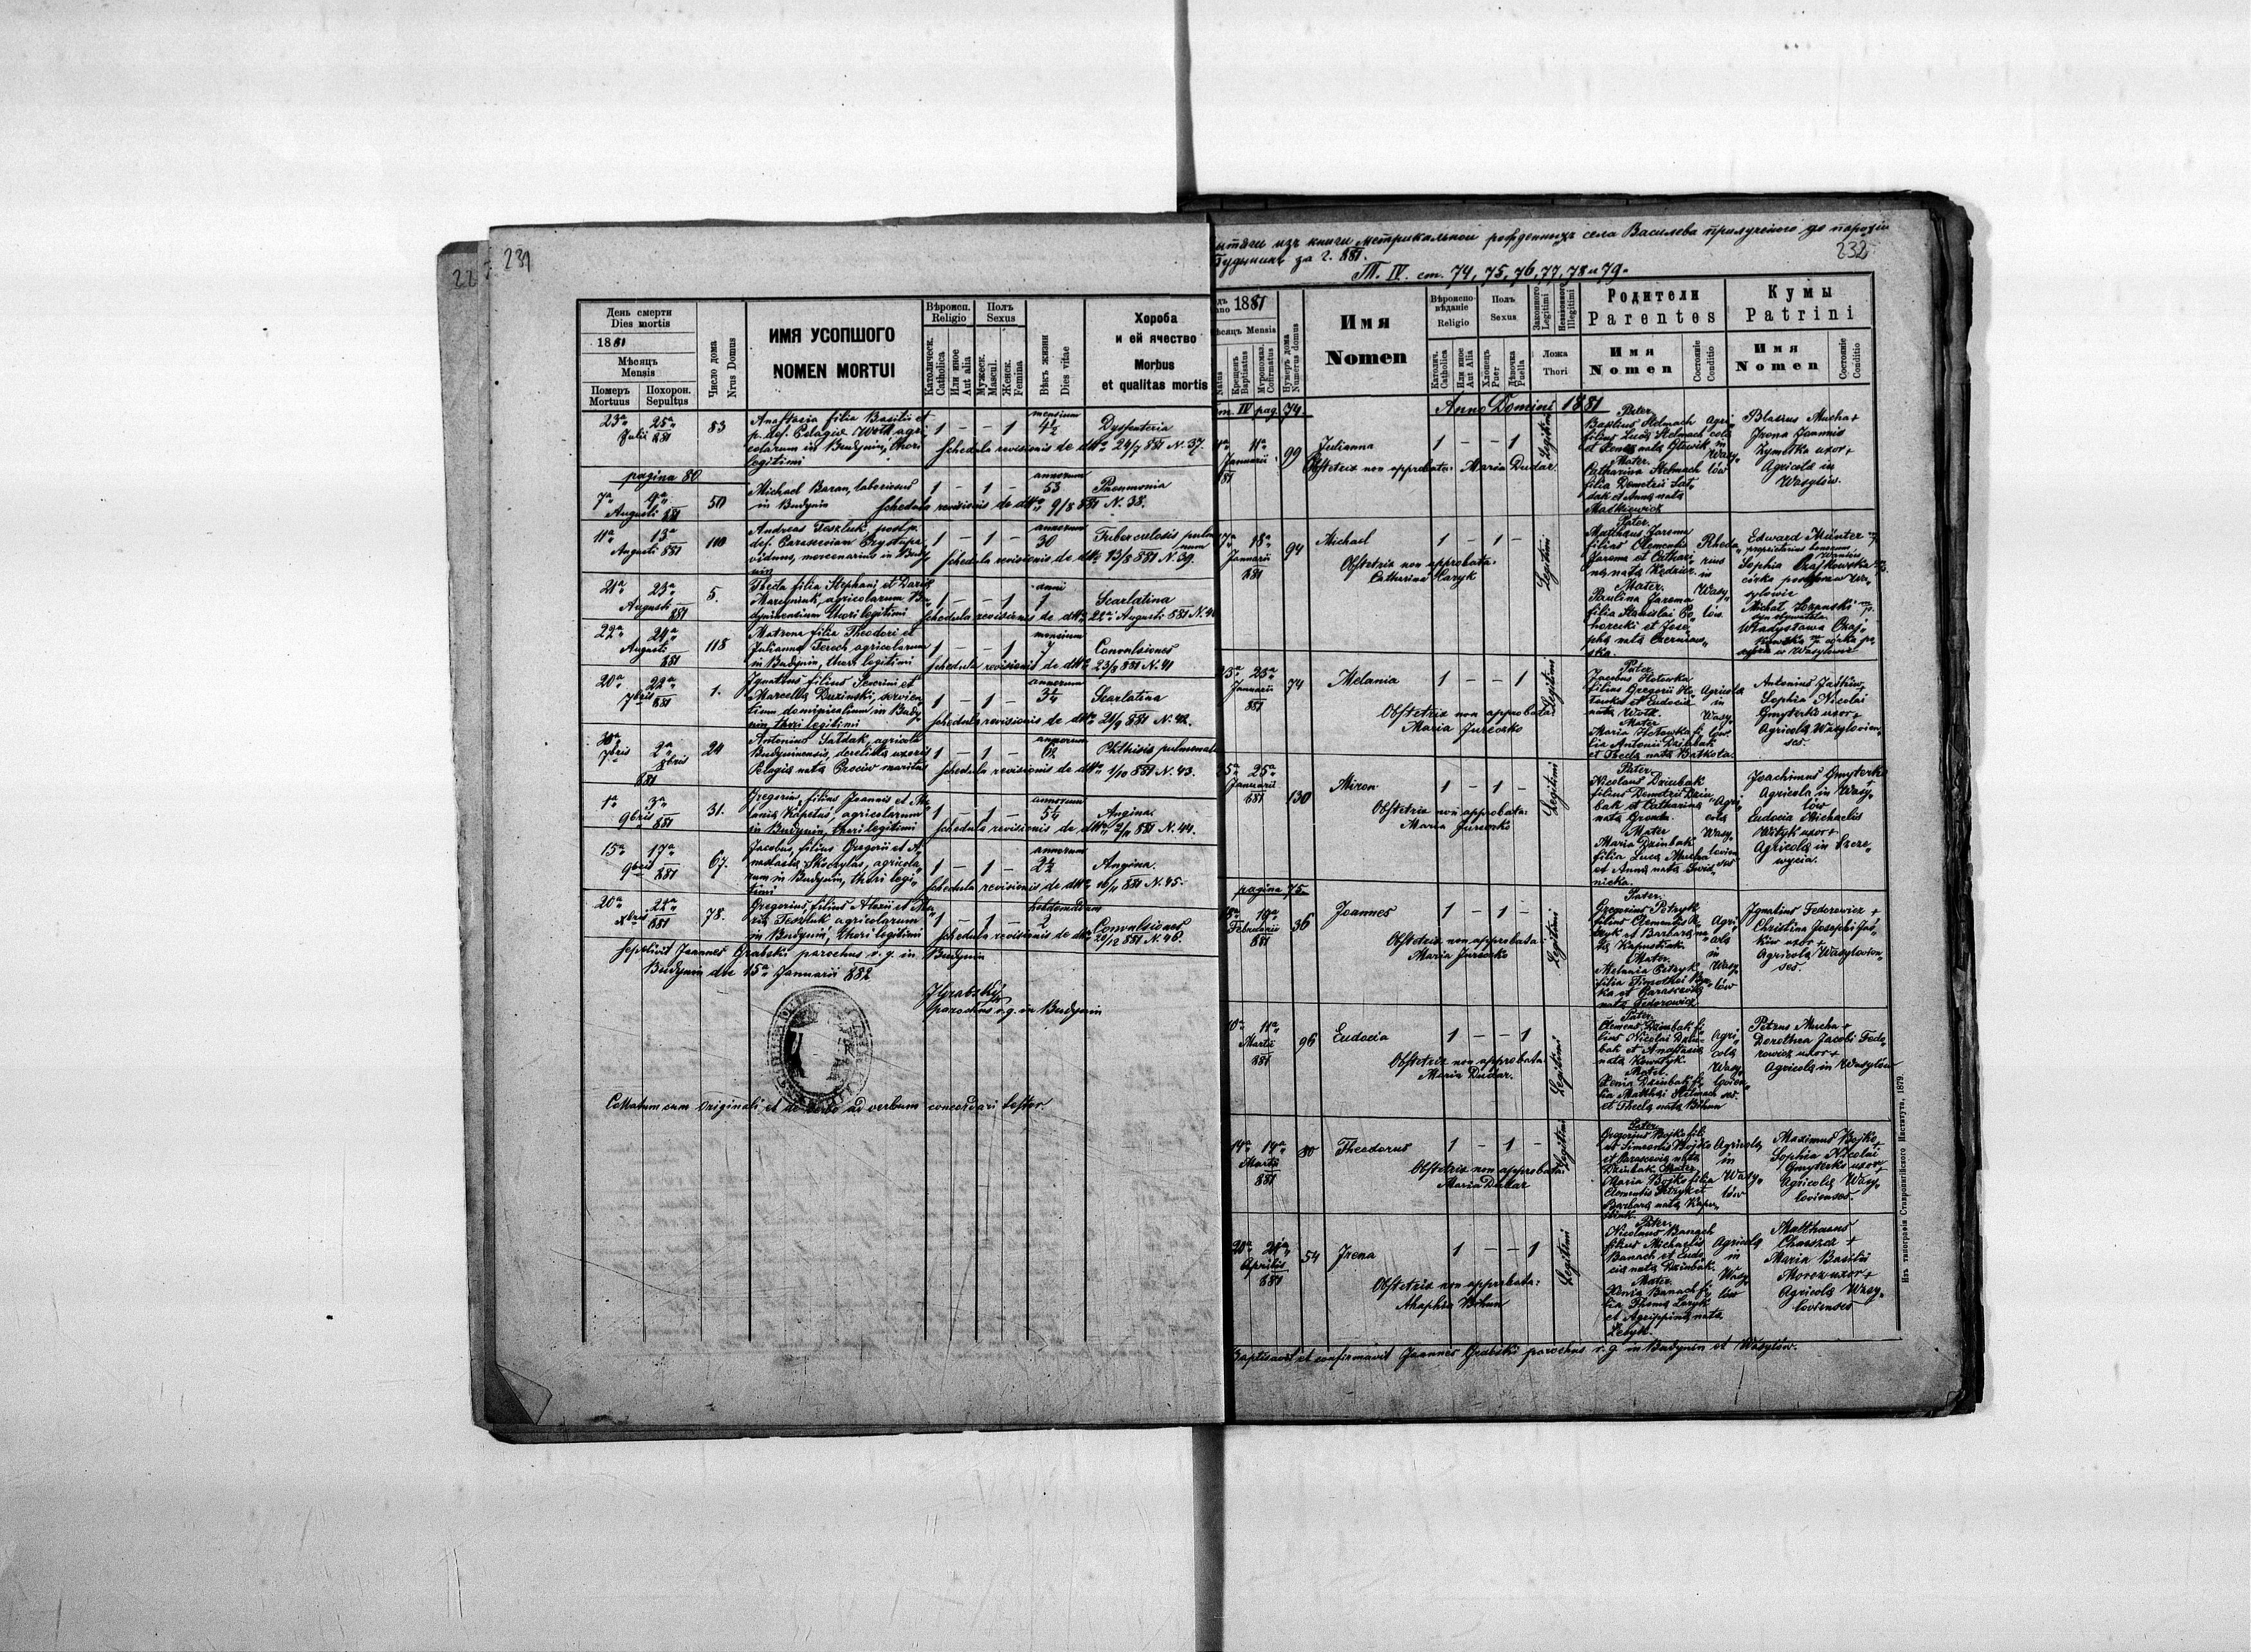 231
День смерти
Dies mortis
1881
Мѣсяцъ
Mensis
Померъ
Mortuus
Похорон.
Sepultus
Число дома
Nrus Domus
ИМЯ УСОПШОГО
NOMEN MORTUI
Вѣроисп.
Religio
Католическ.
Catholica
Или иное
Aut alia
Полъ
Sexus
Мужеск.
Mascul.
Женск.
Femina
Вѣкъ жизни
Dies vitae
Хороба
и ей ячество
Morbus
et qualitas mortis
23a 25a
Julii 881
83
Anastasia filia Basilii et
p. def. Pelagiæ Wołk, agri
colarum in Budynin, thori
legitimi
1 – – 1
mensium
4½
Dysenteria
Schedula revisionis de dtto 24/7 881 N. 37.
pagina 80
7a 9a
Augusti 881
50
Michael Baran, laboriosus
in Budynin
1 – 1 –
annorum
53
Pneumonia
Schedula revisionis de dtto 9/8 881 N. 38.
11a 13a
Augusti 881
110
Andreas Teszluk, post p.
def. Parasceviam
viduus, mercenarius in Budy
nin
1 – 1 –
annorum
30
Tuberculosis pulmo
num
Schedula revisionis de dtto 13/8 881 N. 39.
21a 23a
Augusti 881
5.
Thecla filia Stephani et Dariæ
Marcyniuk, agricolarum Bu
dyninensium thori legitimi
1 – – 1
anni
1
Scarlatina
Schedula revisionis de dtto 22a Augusti 881 N. 40
22a 24a
Augusti 881
118
Matrona filia Theodori et
Julianna Terech, agricolarum
in Budynin, thori legitimi
1 – – 1
mensium
7
Convulsiones
Schedula revisionis de dtto 23/8 881 N. 41
20a 22a
7bris 881
1.
Ignatius filius Severini et
Marcella Duzinski, servien
tium in Budy
nin thori legitimi
1 – 1 –
annorum
3¼
Scarlatina
Schedula revisionis de dtto 21/9 881 N. 42.
7bris 2a
8bris
881
24
Antonius Sałdak, agricola
Budyninensis, derelicta uxoris
Pelagia nata Prociw maritus
1 – 1 –
annorum
Phthisis pulmonalis
Schedula revisionis de dtto 1/10 881 N. 43.
1a 3a
9bris 881
31.
Gregorius, filius Joannis et Me
lania Kapeluś, agricolarum
in Budynin, thori legitimi
1 – 1 –
annorum
5¼
Angina.
Schedula revisionis de dtto 2/11 881 N. 44.
15a 17a
9bris 881
67.
Jacobus, filius Gregorii et A
nastasia Skoczylas, agricola
rum in Budynin, thori legi
timi
1 – 1 –
annorum
2½
Angina.
Schedula revisionis de dtto 16/11 881 N. 45.
20a 22a
Xbris 881
78.
Gregorius, filius Alexii et Ma
ria Teszluk, agricolarum
in Budynin, thori legitimi
1 – 1 –
hebdomadum
2
Convulsiones
Schedula revisionis de dtto 20/12 881 N. 46.
Sepelivit Joannes Grabski parochus r. g. in Budynin
Budynin die 15a Januarii 882
JGrabski
parochus r. g. in Budynin
Collatum cum originali et de verbo ad verbum concordari testor.
232
из книги метрикальнои рожденныхъ села Василева прилученого до парохіи
Будынинъ за г. 881.
Т. IV. ст. 74, 75, 76, 77, 78 и 79.
1881
Мѣсяцъ Mensis
Natus
Крещенъ
Baptisatus
Муропомаз.
Confirmatus
Нумеръ дома
Numerus domus
Имя
Nomen
Вѣроиспо-
вѣданіе
Religio
Католич.
Catholica
Или иное
Aut Alia
Полъ
Sexus
Хлопецъ
Puer
Дѣвочка
Puella
Законного
Legitimi
Незаконного
Illegitimi
Ложа
Thori
Родители
Parentes
Имя
Nomen
Состояніе
Conditio
Кумы
Patrini
Имя
Nomen
Состояніе
Conditio
Tom. IV pag. 74.
Anno Domini 1881
11a
Januarii
881
99
Julianna
1 – – 1
Legitimi
Obstetrix non approbata: Maria Dudar.
Pater.
Basilius Stelmach
filius Lucæ Stelmach
et Xenia nata
Mater.
Catharina Stelmach
filia Demetrii Sał
dak et Anna nata
Maśkiewicz
Agri
cola
in
Wasy
łów
Blasius Mucha +
Irena Joannis
Zymołka uxor +
Agricolæ in
Wasylów.
18a
Januarii
881
94
Michael
1 – 1 –
Legitimi
Obstetrix non approbata:
Catharina Haryk
Pater.
Matthæus Jarema
filius Clementis
Jarema et Cathari
na nata
Mater.
Paulina Jarema
filia Stanislai
horecki et Jose
pha nata Czerniaw
ska.
Rheda
rius
in
Wasy
łów
Edward Münter mp
proprietarius bonorum
Sophia Czajkowska mp.
córka
Michał mp.
syn
Władysława Czaj
kowska mp córka
w Wasylowie
23a 25a
Januarii
881
74
Melania
1 – – 1
Legitimi
Obstetrix non approbata:
Maria Jureczko
Pater
Jacobus Hołowka
filius Gregorii Ho
łowka et Eudocia
nata Wołk.
Mater
Maria Hołowka fi
lia Antonii Dziubak
et Thecla nata Batkoła.
Agricola
in
Wasy
łów.
Antonius Jaśkiw +
Sophia Nicolai
Gmyterko uxor +
Agricolæ Wasylovien
ses.
25a 25a
Januarii
881
130
Miron
1 – 1 –
Legitimi
Obstetrix non approbata:
Maria Jureczko
Pater.
Nicolaus Dziubak
filius Demetrii Dziu
bak et Catharina
nata Gronda.
Mater
Maria Dziubak
filia Lucæ Mucha
et Anna nata
nicka.
Agri
cola
Wasy
lovien
ses
Joachimus Gmyterko
+
Agricola in Wasy
łów
Eudocia Michaelis
Wityk uxor +
Agricola in Szcze
pagina 75.
18a 19a
Februarii
881
36
Joannes
1 – 1 –
Legitimi
Obstetrix non approbata
Maria Jureczko
Pater.
Gregorius Petryk
filius Clementis Pe
tryk et Barbara na
ta Kapuśtiak.
Mater.
Melania Petryk
filia Timothei
et Parascevia
nata Fedorowicz
Agri
cola
in
Wasy
łów
Ignatius Fedorowicz +
Christina Josephi Jaś
kiw uxor +
Agricolæ Wasylovien
ses.
10a 11a
Martii
881
96
Eudocia
1 – – 1
Legitimi
Obstetrix non approbata
Maria Dudar.
Pater.
Clemens Dziubak fi
lius Nicolai Dziu
bak et Anastasia
nata
Mater
Xenia Dziubak fi
lia Matthæi Stelmach
et Thecla nata Bihun
Agri
cola
Wasy
lovien
ses.
Petrus Mucha +
Dorothea Jacobi Fedo
rowicz uxor +
Agricolæ in Wasylów
14a 14a
Martii
881
80
Theodorus
1 – 1 –
Legitimi
Obstetrix non approbata:
Maria Dudar
Pater.
Gregorius Bojko fili
us Simeonis Bojko
et Parascevia nata
Dziubak. Mater
Maria Bojko filia
Clementis Petryk et
Barbara nata Kapu
śtiak.
Agricola
in
Wasy
łów
Maximus Bojko +
Sophia Nicolai
Gmyterko uxor +
Agricolæ Wasy
lovienses.
20a 21a
Aprilis
881
54
Irena
1 – – 1
Legitimi
Obstetrix non approbata:
Ahaphia Bihun
Pater.
Nicolaus Banach
filius Michaelis
Banach et Eudo
cia nata Dziubak.
Mater.
Xenia Banach fi
lia Thoma Laryk
et Agrippina nata
Agricola
in
Wasy
łów
Matthæus
Charszcz +
Maria Basilii
Moroz uxor +
Agricolæ Wasy
lovienses
Baptisavit et confirmavit Joannes Grabski parochus r. g. in Budynin et Wasylów.
Изъ типографіи Ставропигійского Института, 1879.